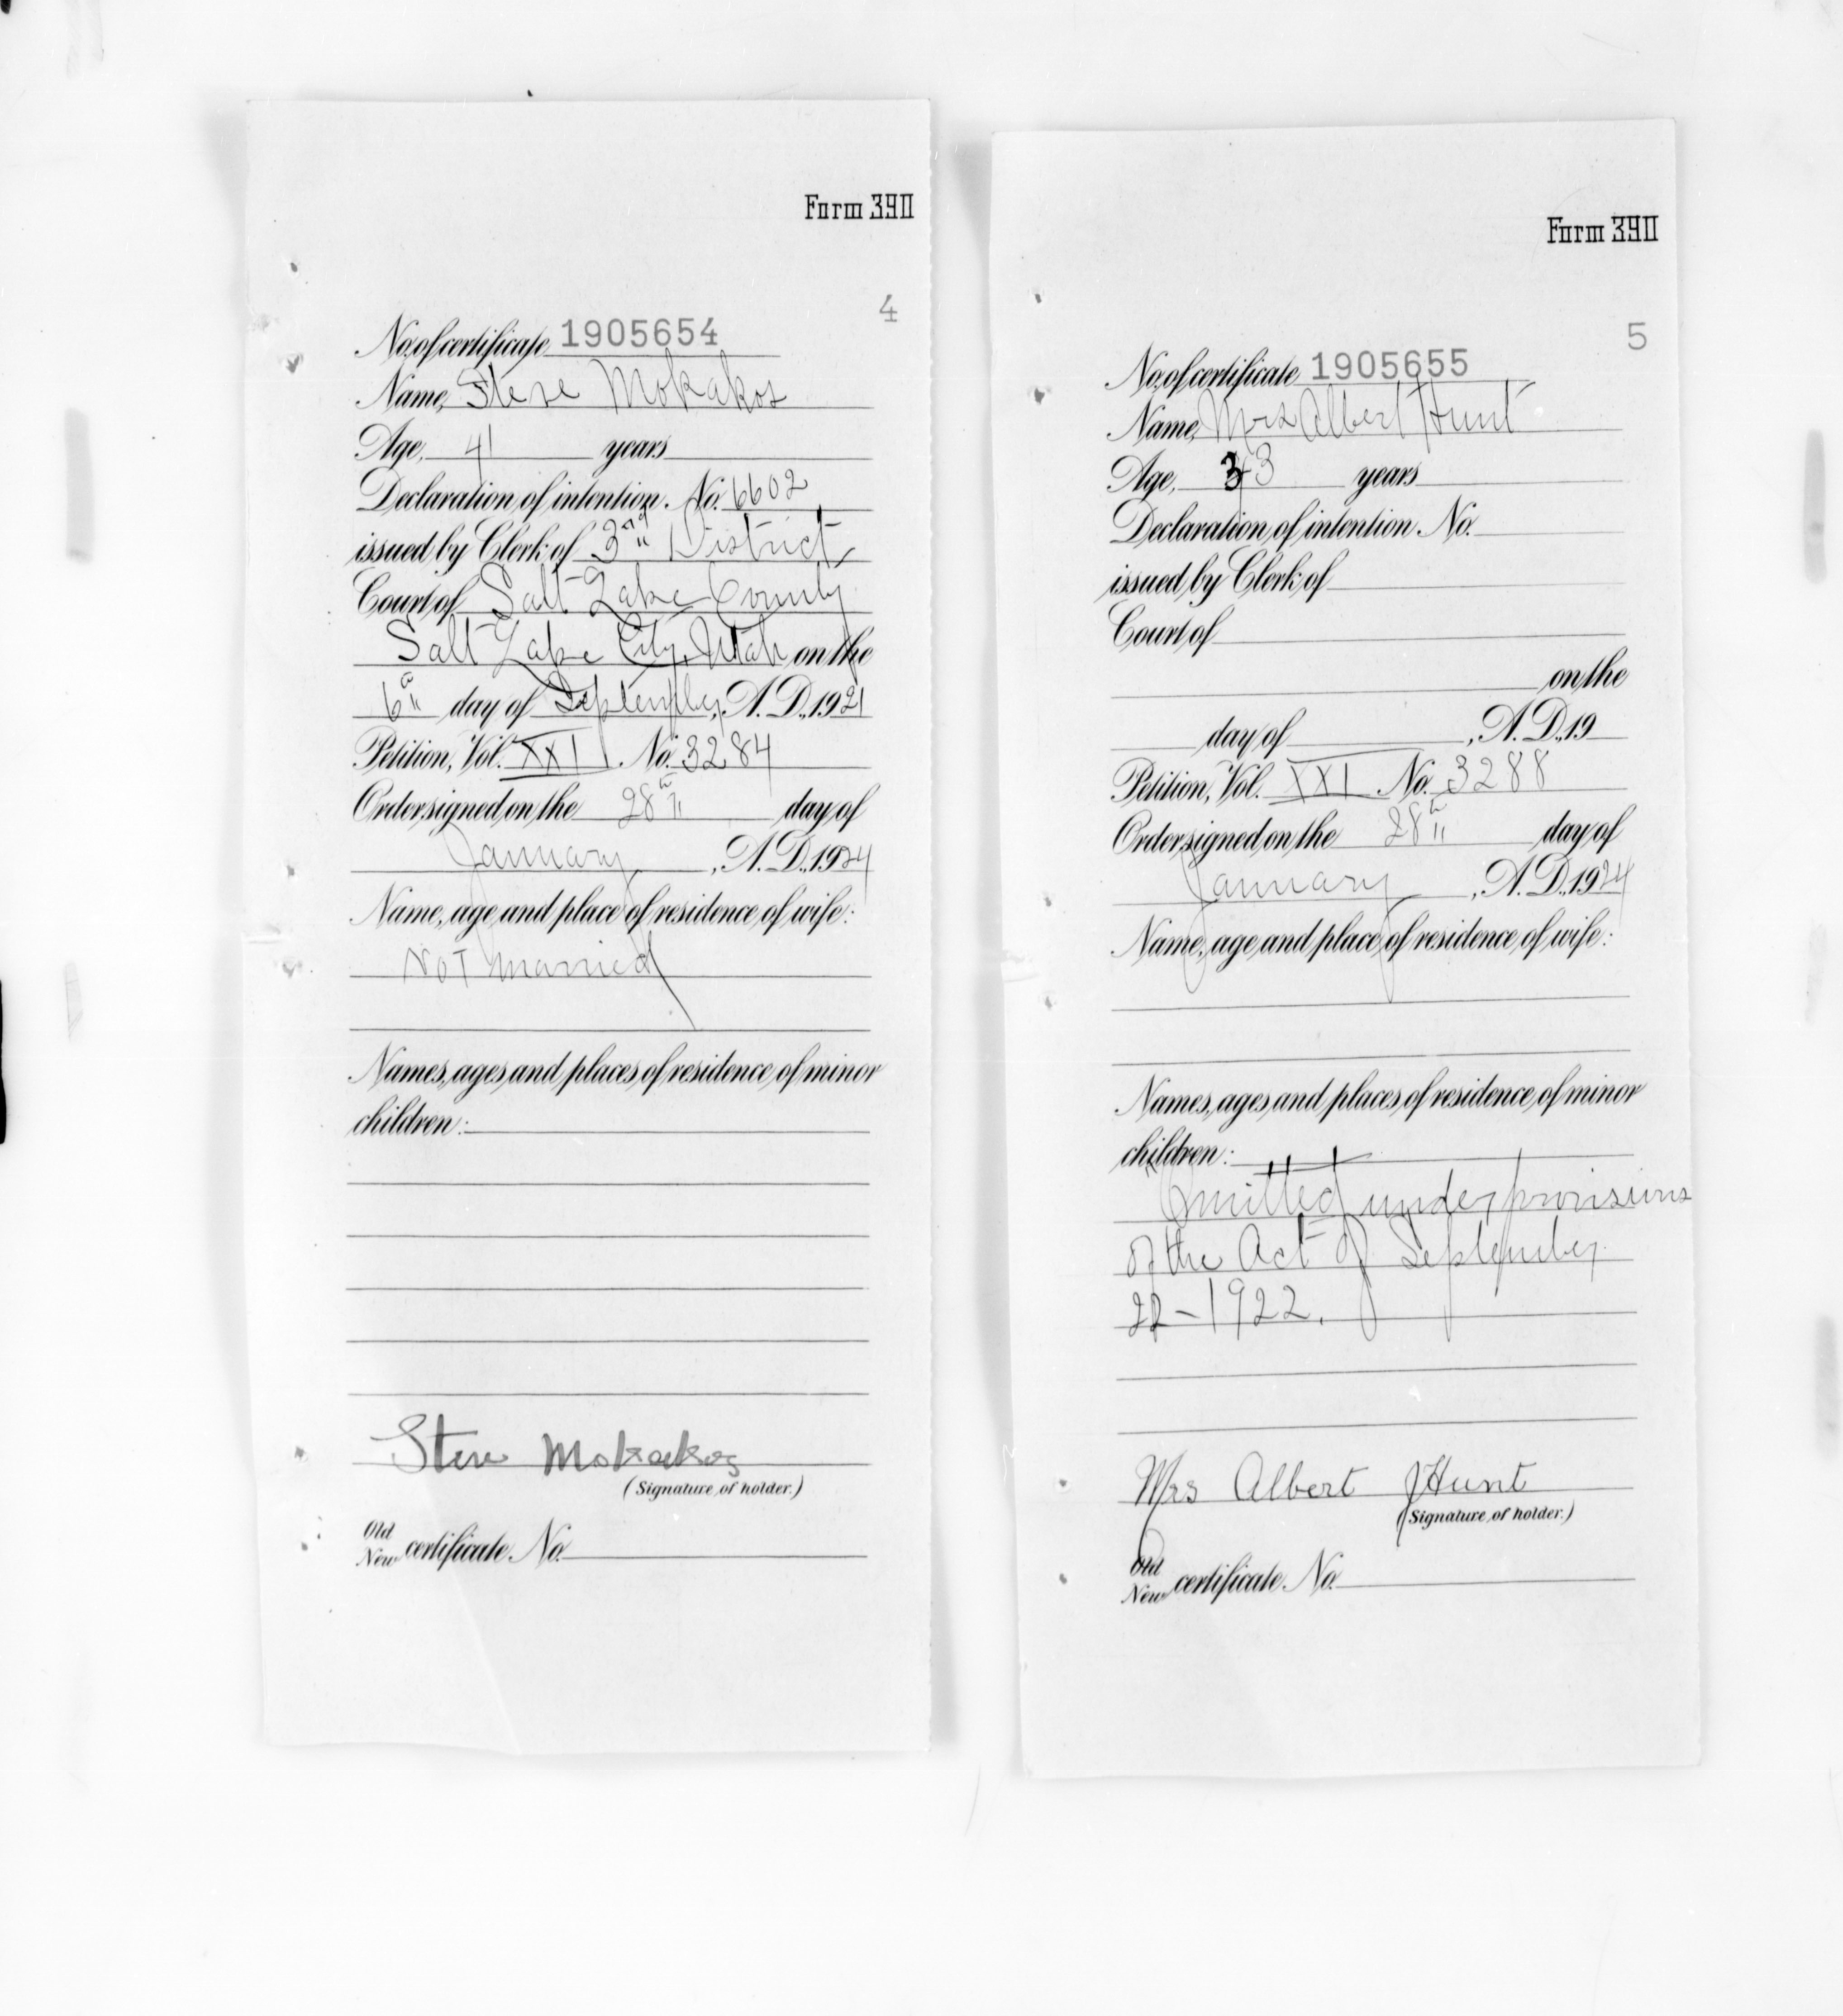 Form 390
4
No. of certificate 1905654
Name, Steve Mokakos
Age, 41 years
Declaration of intention. No. 6602
issued by Clerk of 3rd District
Court of Salt Lake County
Salt Lake City, Utah on the
6th day of September, A.D., 1921
Petition, Vol. XXI No. 3284
Order signed on the 28th day of
January, A.D., 1924
Name, age and place of residence of wife:
Not married
Names, ages and places of residence of minor
children:
Steve Mokakos
(Signature of holder.)
Old
New certificate No.
Form 390
5
No. of certificate 1905655
Name, Mrs Albert Hunt
Age, 33 years
Declaration of intention No.
issued by Clerk of
Court of
on the
day of , A.D., 19
Petition, Vol. XXI No. 3288
Order signed on the 28th day of
January, A.D., 1924
Name, age and place of residence of wife:
Names, ages and places of residence of minor
children:
Omitted under provisions
of the Act of September
22-1922.
Mrs Albert Hunt
(Signature of holder.)
Old
New certificate No.